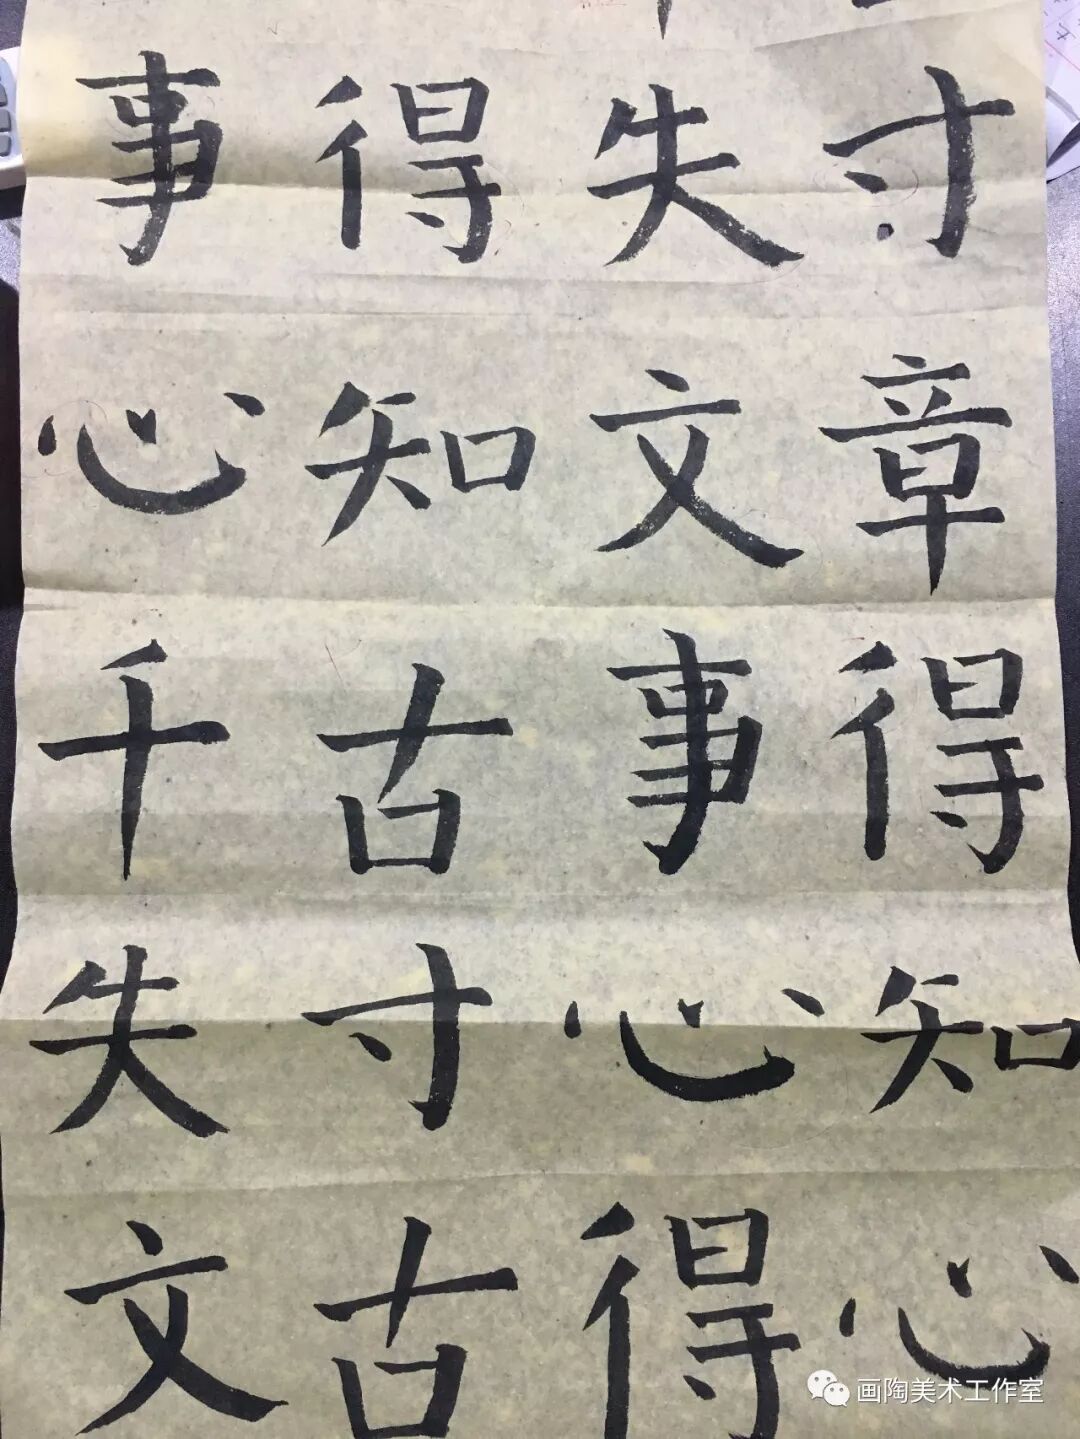 事得失寸
心知文章
千古事得
失寸心知
文古得心
画陶美术工作室